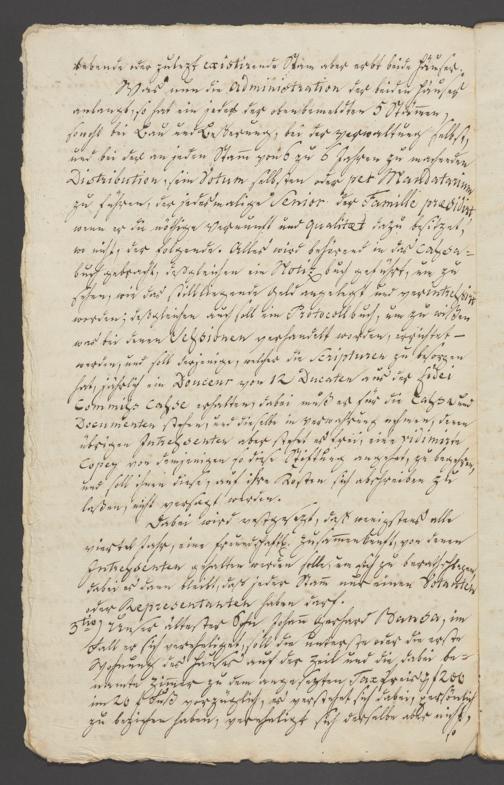 lebende oder zulezt existirende Stam aber erbt beide Häuser.
Was nun die Administration der beiden Häuser
anlangt, so hat ein jeder der obenbemeldten 5 Stämen,
sowohl bei Bau und Beßerung, bei der Verwaltung selbst,
und bei der an jeden Stamm von 6 zu 6 Jahren zu machenden
Distribution, sein Votum selbsten oder per Mandatarium
zu führen, der jedesmalige Senior der Famille praesidirt
wenn er die nöthige Vernunft und Qualitæt dazu besitzet,
wo nicht, der folgende. Alles wird behörend in das Cassa-
buch gebracht, desgleichen ein Notiz buch geführt, um zu
sehen, wie das stillliegende Geld angelegt und verinteressirt
worden; desgleichen auch soll ein Protocollbuch, um zu wißen
was bei denen Sessionen verhandelt worden, errichtet
werden, und soll derjenige, welcher die Scripturen zu besorgen
hat, jährlich ein Douceur von 12 Ducaten aus der Fidei
Commiss Casse erhalten, dabei muß er für die Cassa und
Documenten stehen, und dieselbe in Verwahrung nehmen, denen
übrigen Interessenten aber steht es frei, eine vidimirte
Copey von demjenigen so diese Stiftung angehet, zu begehren,
und soll ihnen diese, auf ihre Kosten sich abschreiben zu
laßen, nicht versagt werden.
Dabei wird vestgesetzt, daß wenigstens alle
viertel Jahr, eine freundschaftl. Zusammenkunft, von denen
Interessenten gehalten werden solle, um sich zu berathschlagen
dabei es dann bleibt, daß jeder Stam nur einen Votanten
oder Representanten haben darf.
3tio) Unser ältester Sohn Johann Gerhard Bansa, im
Fall er sich verehliget, soll die unterste oder die erste
Wohnung des Hauses auf der Zeil und die dabei be-
namte Zimer zu dem angesetzten Taxpreis f 200
im 20 f Fuß vorzüglich, es verstehet sich dabei, persönlich
zu beziehen haben, verehliget sich derselbe aber nicht,
so